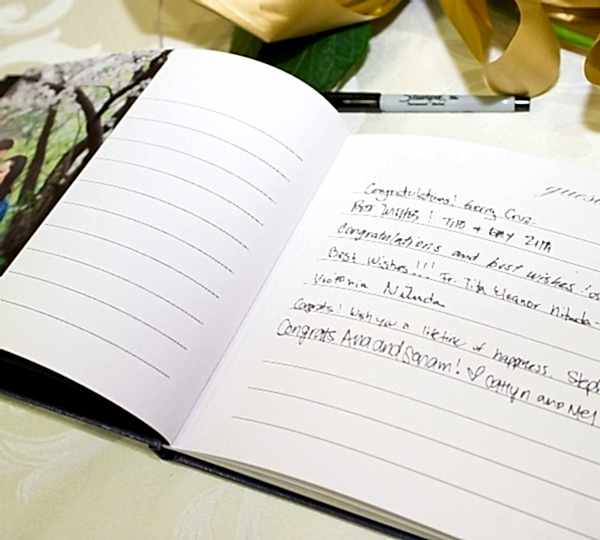 Sharpie
guest
Congratulations! Gerry Cruz
Best Wishes! Tito + Gay Zita
Congratulations and best wishes!
Best Wishes!!! Fr. Tita Eleanor Nilunda
Victoria Nilunda
Congrats! Wish you a lifetime of happiness. Steph
Congrats Ana and Sonam! ♡ Caitlyn and Mel